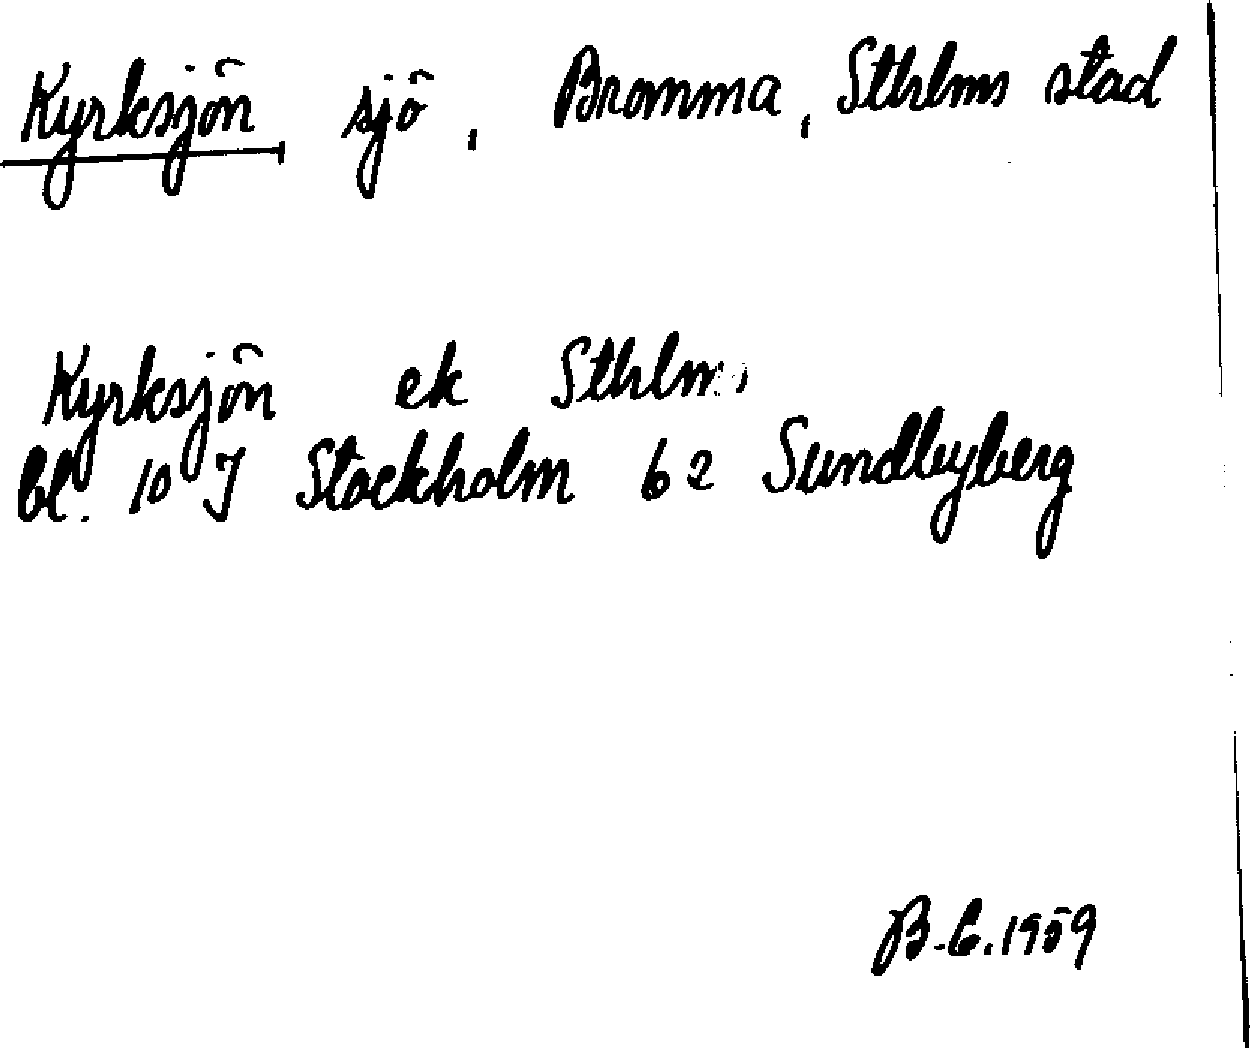 Kyrksjön sjö, Bromma, Sthlms stad
Kyrksjön ek Sthlms
bl. 10 I Stockholm 62 Sundbyberg
B.C. 1959